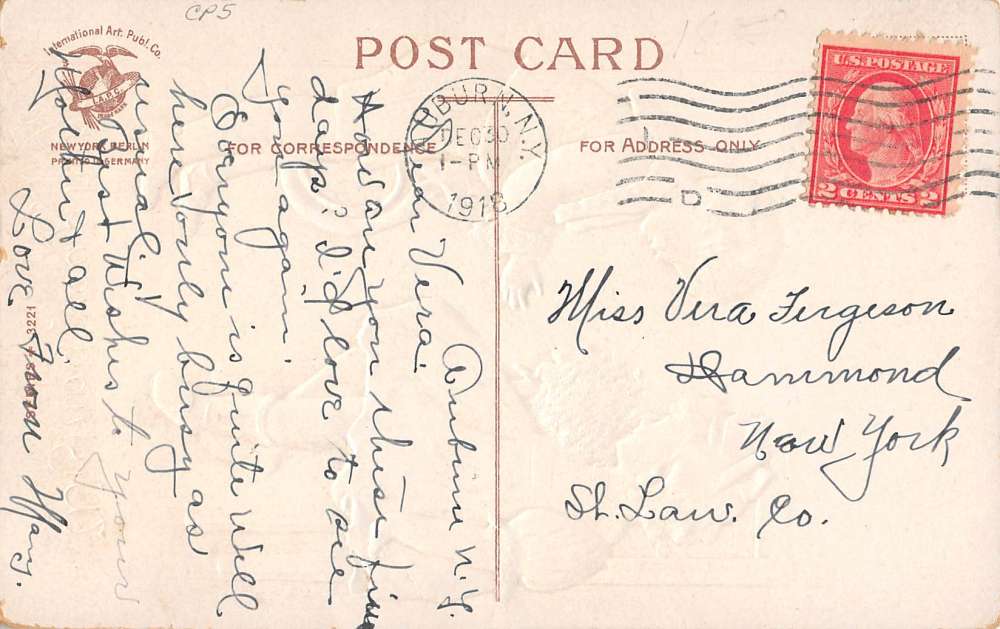 CP5
International Art. Publ. Co.
NEW YORK BERLIN
PRINTED IN GERMANY
POST CARD
FOR CORRESPONDENCE
FOR ADDRESS ONLY
AUBURN, N.Y.
DEC 30
1-PM
1918
D
U.S. POSTAGE
2 CENTS 2
Miss Vera Fergeson
Hammond
New York
St. Law. Co.
Auburn N.Y.
Dear Vera:
How are you these fine
days? I'd love to see
you again.
Everyone is quite well
here & only busy as
usual.
Best Wishes to your
Mother & all.
Love From Mary.
3221